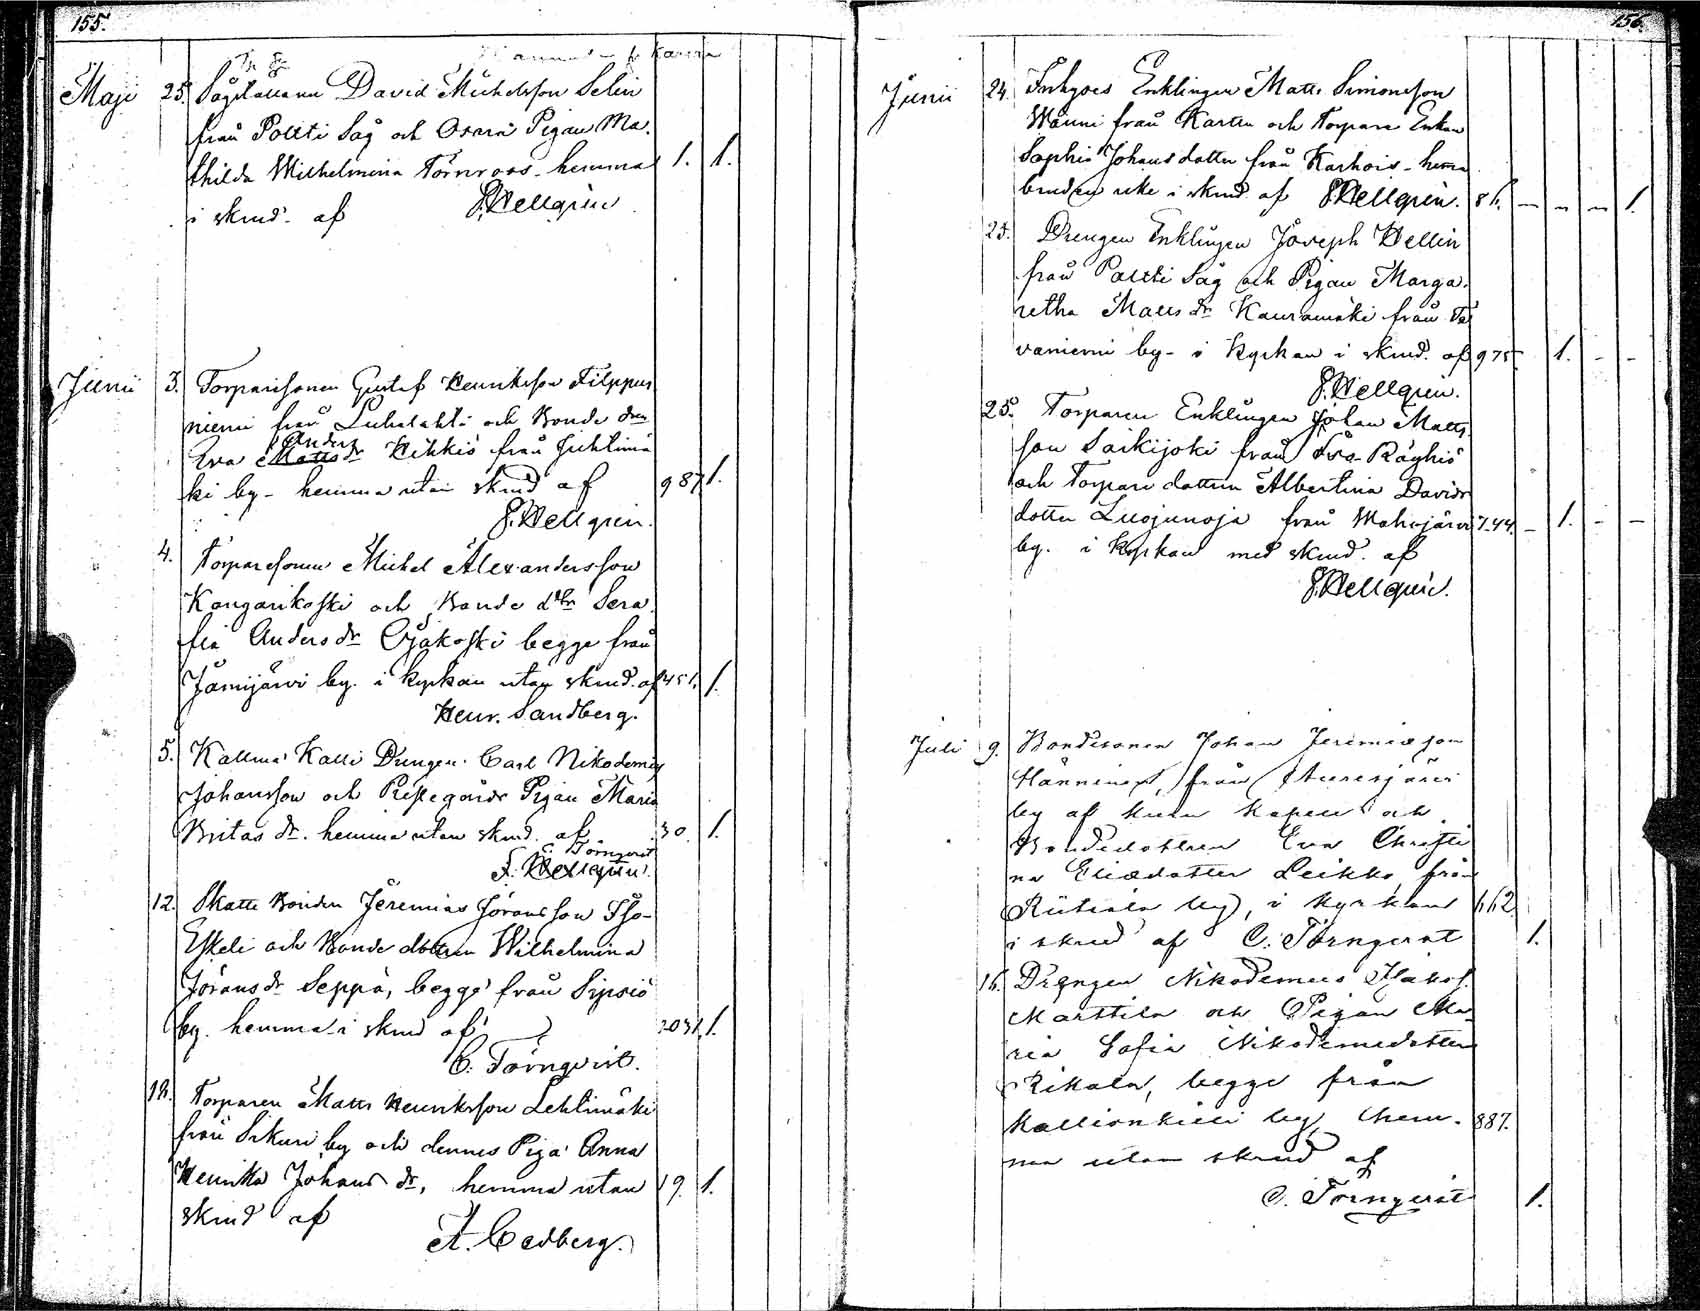 155.
Maji 25. Sågställaren David Michelsson Selin
från Poltti Såg och Pigan Ma-
thilda Wilhelmina Törnroos - hemma 1. 1.
i skrud. af Hellgrén
Junii 3. Torparesonen Gustaf Henriksson Filppus
niemi från Luhalahti och Bonde dren
Anders
Eva Matts dr Heikkis från Juhtimä
ki by - hemma utan skrud af 987. 1.
Hellgrén.
4. Torparesonen Michel Alexandersson
Kangarikoski och Bonde dttr Sera
fia Anders dr Ojakoski begge från
Jämijärvi by. i kyrkan utan skrud. af 451. 1.
Henr. Sandberg.
5. Kallma Kalli Drengen Carl Nikodemus
Johansson och Prestegårds Pigan Maria
Britas dr. hemma utan skrud. af 30. 1.
C. Törnqvist
Hellgrén
12. Skatte Bonden Jeremias Jöransson Iso-
Eskeli och Bonde dottren Wilhelmina
Jörans dr Seppä, begge från Sipsiö
by. hemma i skrud af 1.
C. Törnqvist.
18. Torparen Matts Henriksson Lehtimäki
från Sikuri by och dennes Piga Anna
Henrika Johans dr, hemma utan 19. 1.
skrud af
A. Cedberg.
156.
Junii 24. Inhyses Enklingen Matts Simonsson
Wänni från Karttu och Torpare Enkan
Sophia Johans dotter från Karhois - hemma
i skrud. af Hellgrén. 86. - - - 1.
25. Drengen Enklingen Joseph Hellin
från Poltti Såg och Pigan Marga-
retha Matts dr Kauramäki från
vaniemi by - i kyrkan i skrud. af 975. 1. - -
Hellgrén.
25. Torparen Enklingen Johan Matts
son Särkijoki från Iso-Röyhiö
och Torpare dottren Albertina Davids
dotter Luojunoja från Wahojärvi 744. - 1. - -
by. i kyrkan med skrud. af
Hellgrén.
Juli 9. Bondesonen Johan Jeremiæson
Hänninen, från
by af kapell och
Bondedottren Eva Christi
na Eliædotter Leikko från
Riitiala by, i kyrkan 662.
i skrud af C. Törnqvist 1.
16. Drengen Nikodemus Isaks s.
Marttila och Pigan Ma-
ria Sofia Nikodemidotter
Rikala, begge från
Kallionkieli by, hem- 887.
ma utan skrud af
C. Törnqvist 1.